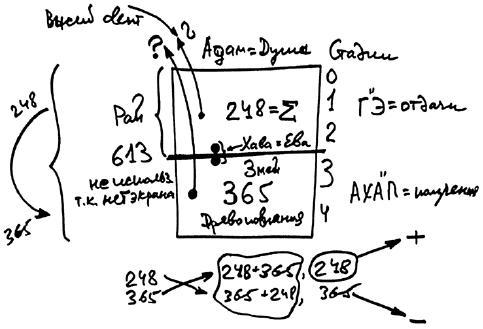 Высш
?
Адам=Душа
Стадии
0
248
Рай
248=Σ
1
Г"Э=отдачи
Хава=Ева
2
613
Змей
не использ
т.к. нет экрана
365
3
АХА"П=получения
365
4
+
248
248+365,
248
365
365+248,
365
-